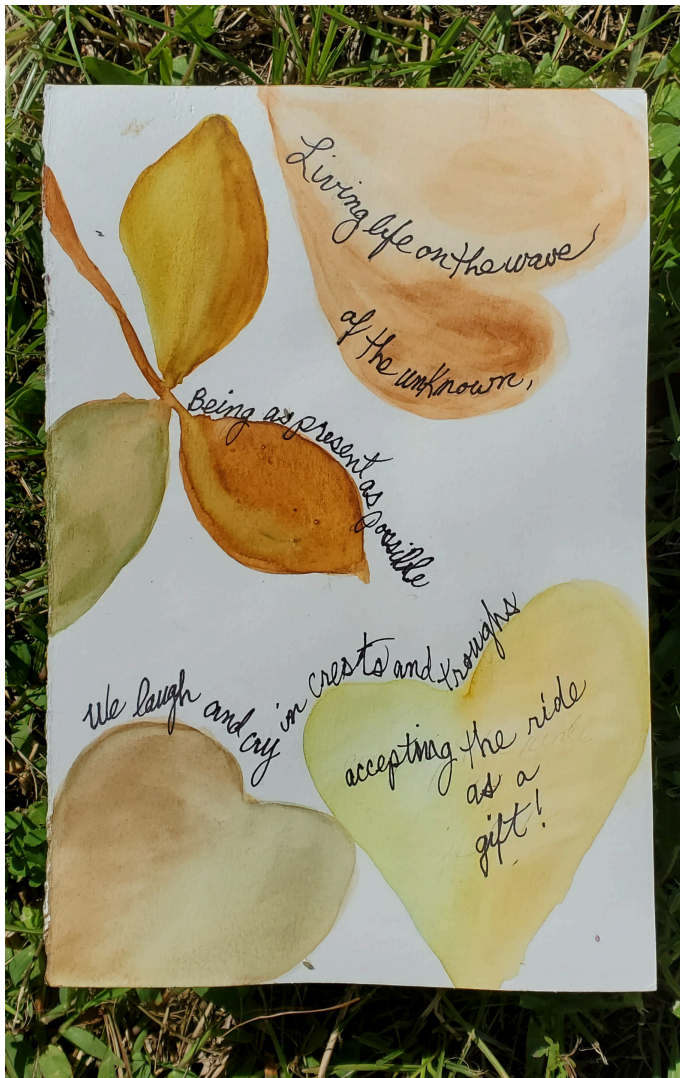 Living life on the wave
of the unknown,
Being as present as possible
We laugh and cry in crests and troughs
accepting the ride
as a
gift!